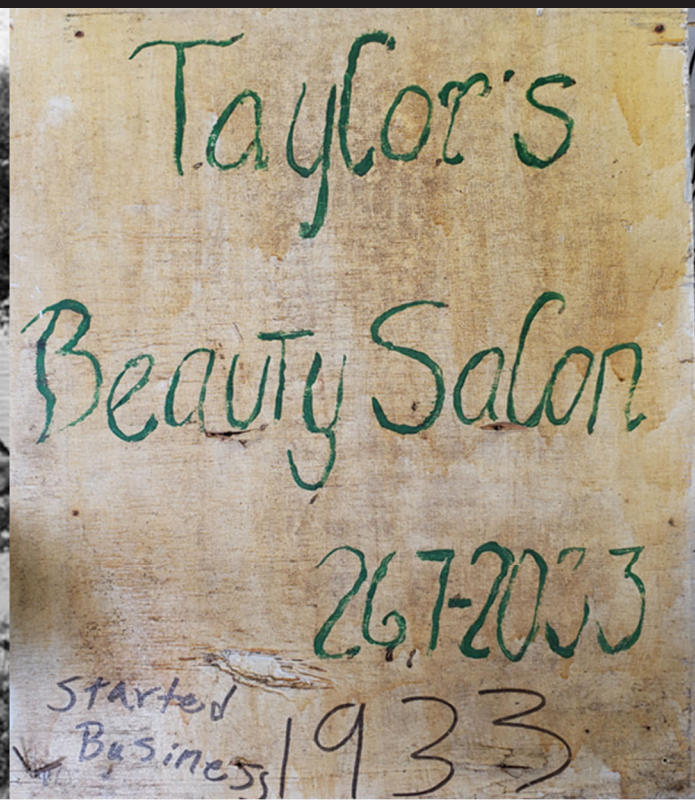 Taylor's
Beauty Salon
267-2033
Started
Business 1933